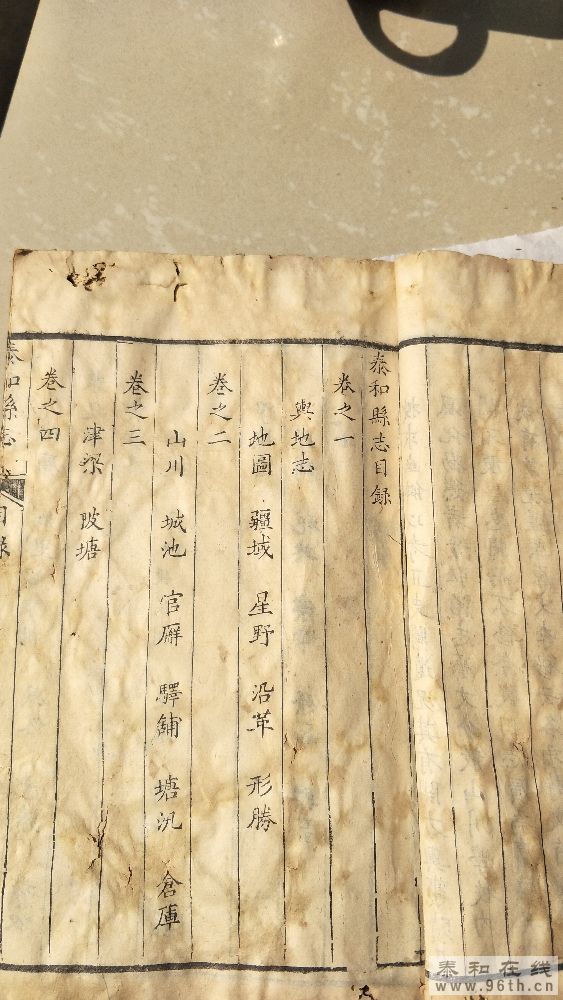 泰和縣志目録
卷之一
輿地志
地圖 疆域 星野 沿革 形勝
卷之二
山川 城池 官廨 驛舖 塘汛 倉庫
卷之三
津梁 陂塘
卷之四
泰和縣志 目録
泰和在线
www.96th.cn